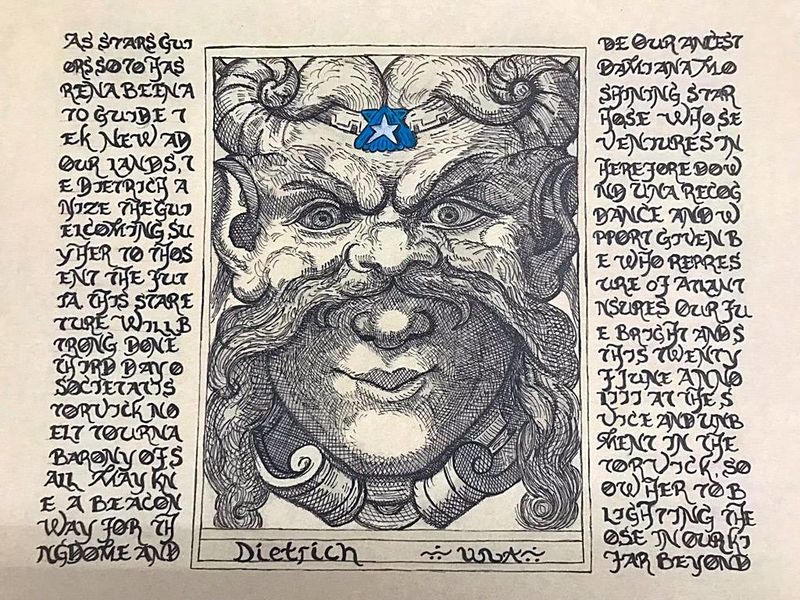 AS STARS GUI DE OUR ANCEST
ORS SO TO HAS DAMIANA MO
RENA BEEN A SHINING STAR
TO GUIDE T HOSE WHO SE
EK NEW AD VENTURES IN
OUR LANDS, T HEREFORE DOW
E DIETRICH A ND UNA RECOG
NIZE THE GUI DANCE AND W
ELCOMING SU PPORT GIVEN B
Y HER TO THOS E WHO REPRES
ENT THE FUT URE OF ATLANT
IA. THIS STAR E NSURES OUR FU
TURE WILL B E BRIGHT AND S
TRONG DONE THIS TWENTY
THIRD DAY O F JUNE ANNO
SOCIETATIS LIIII AT THE S
TORVICK NO VICE AND UNB
ELT TOURNA MENT IN THE
BARONY OF S TORVICK, SO
ALL MAY KN OW HER TO B
E A BEACON LIGHTING THE
WAY FOR TH OSE IN OUR KI
NGDOME AND FAR BEYOND
Dietrich UNA